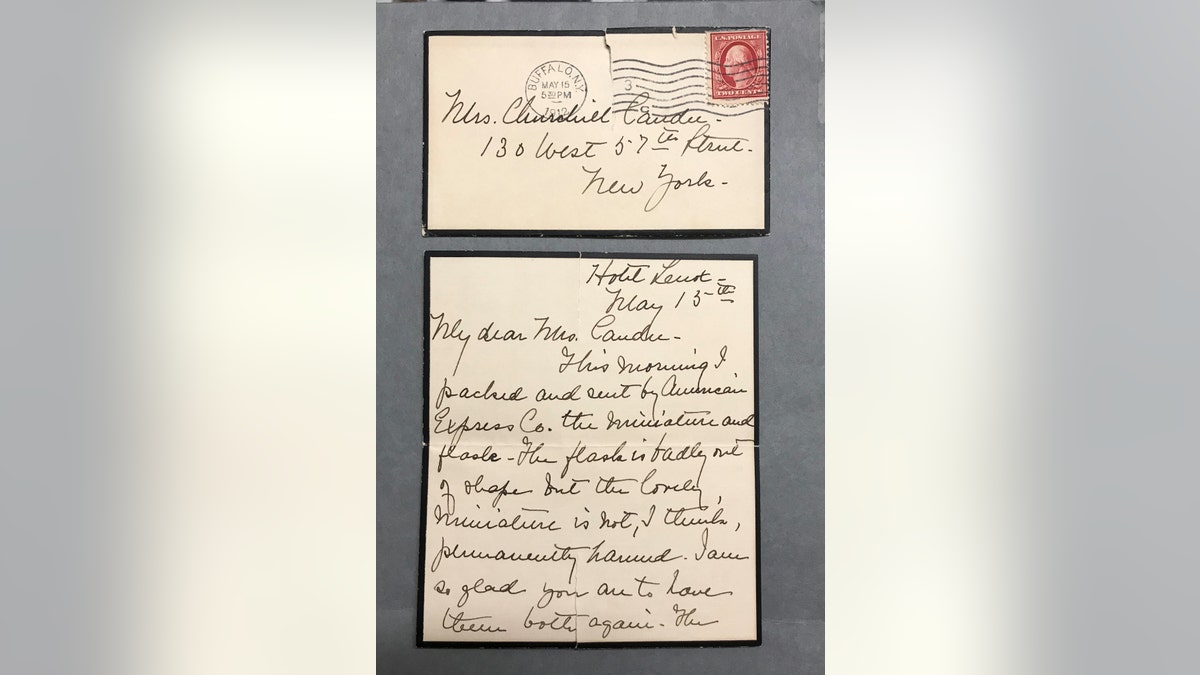 U.S. POSTAGE
TWO CENTS
BUFFALO, N.Y.
MAY 15
5 30 PM
1912
3
Mrs. Churchill Candee -
130 West 57th Street.
New York -
Hotel Lenox -
May 15th
My dear Mrs. Candee -
This morning I
packed and sent by American
Express Co. the miniature and
flask - The flask is badly out
of shape but the lovely
miniature is not, I think,
permanently harmed. I am
so glad you are to have
them both again. The